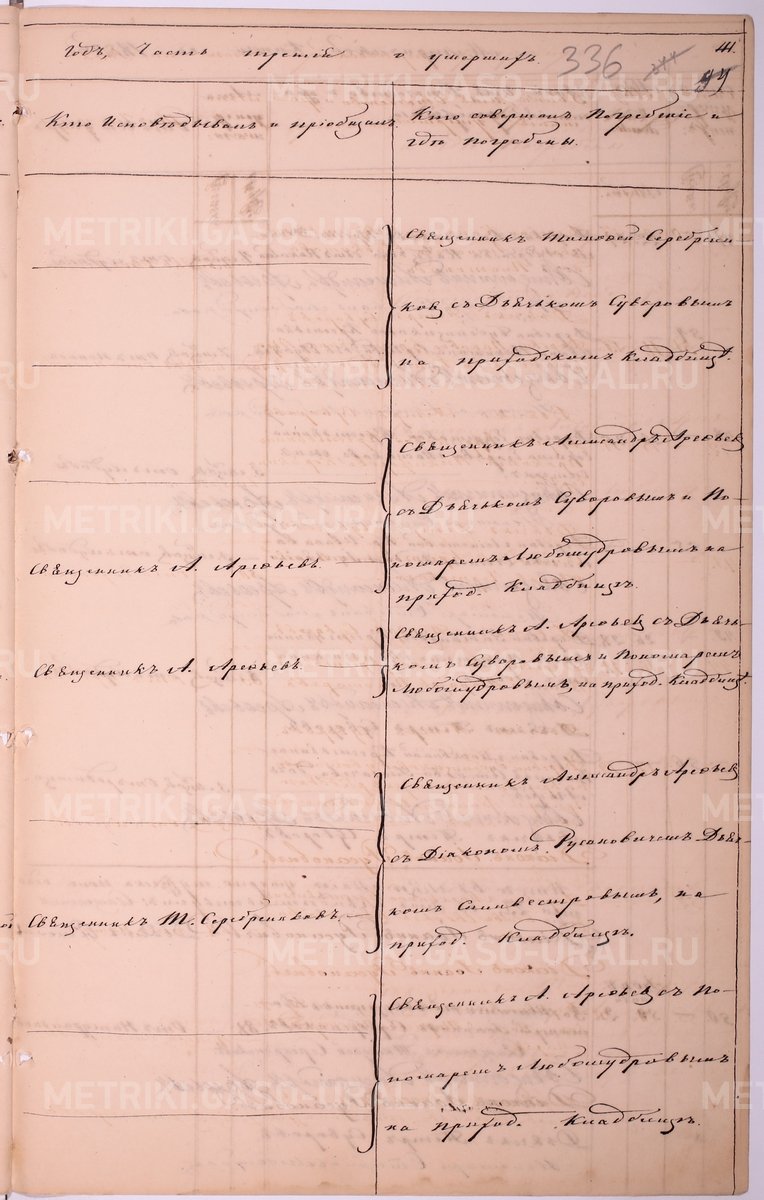 Годъ, Часть третія о умершихъ.
336
41.
Кто Исповѣдывалъ и пріобщалъ.
Кто совершалъ Погребеніе и
гдѣ погребены.
Священникъ Тимофей Серебрени-
ковъ съ Дьячькомъ Суворовымъ
на приходскомъ кладбищѣ.
Священникъ Александръ Арефьевъ
съ Дьячькомъ Суворовымъ и По-
номаремъ Любомудровымъ на
приход. Кладбищѣ.
Священникъ А. Арефьевъ.
Священникъ А. Арефьевъ съ Дьячь-
комъ Суворовымъ и Пономаремъ
Любомудровымъ, на приход. Кладбищѣ.
Священникъ А. Арефьевъ
Священникъ Александръ Арефьевъ
съ Діакономъ Русановичемъ Дьяч-
комъ Силивестровымъ, на
приход. Кладбищѣ.
Священникъ Т. Серебрениковъ.
Священникъ А. Арефьевъ съ По-
номаремъ Любомудровымъ
на приход. Кладбищѣ.
METRIKI.GASO-URAL.RU